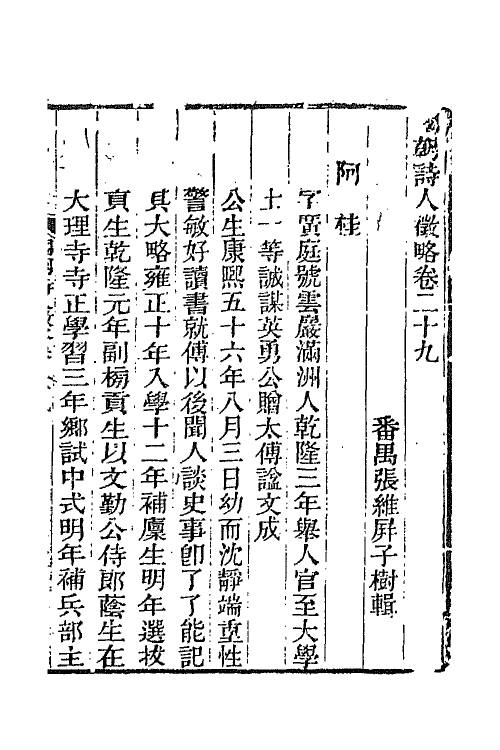 國朝詩人徵略卷二十九
番禺張維屏子樹輯
阿桂
字廣庭號雲巖滿洲人乾隆三年舉人官至大學
士一等誠謀英勇公贈太傅諡文成
公生康熙五十六年八月三日幼而沈靜端重性
警敏好讀書就傅以後聞人談史事卽了了能記
其大略雍正十年入學十二年補廩生明年選拔
貢生乾隆元年副榜貢生以文勤公侍郎蔭生在
大理寺寺正學習三年鄉試中式明年補兵部主